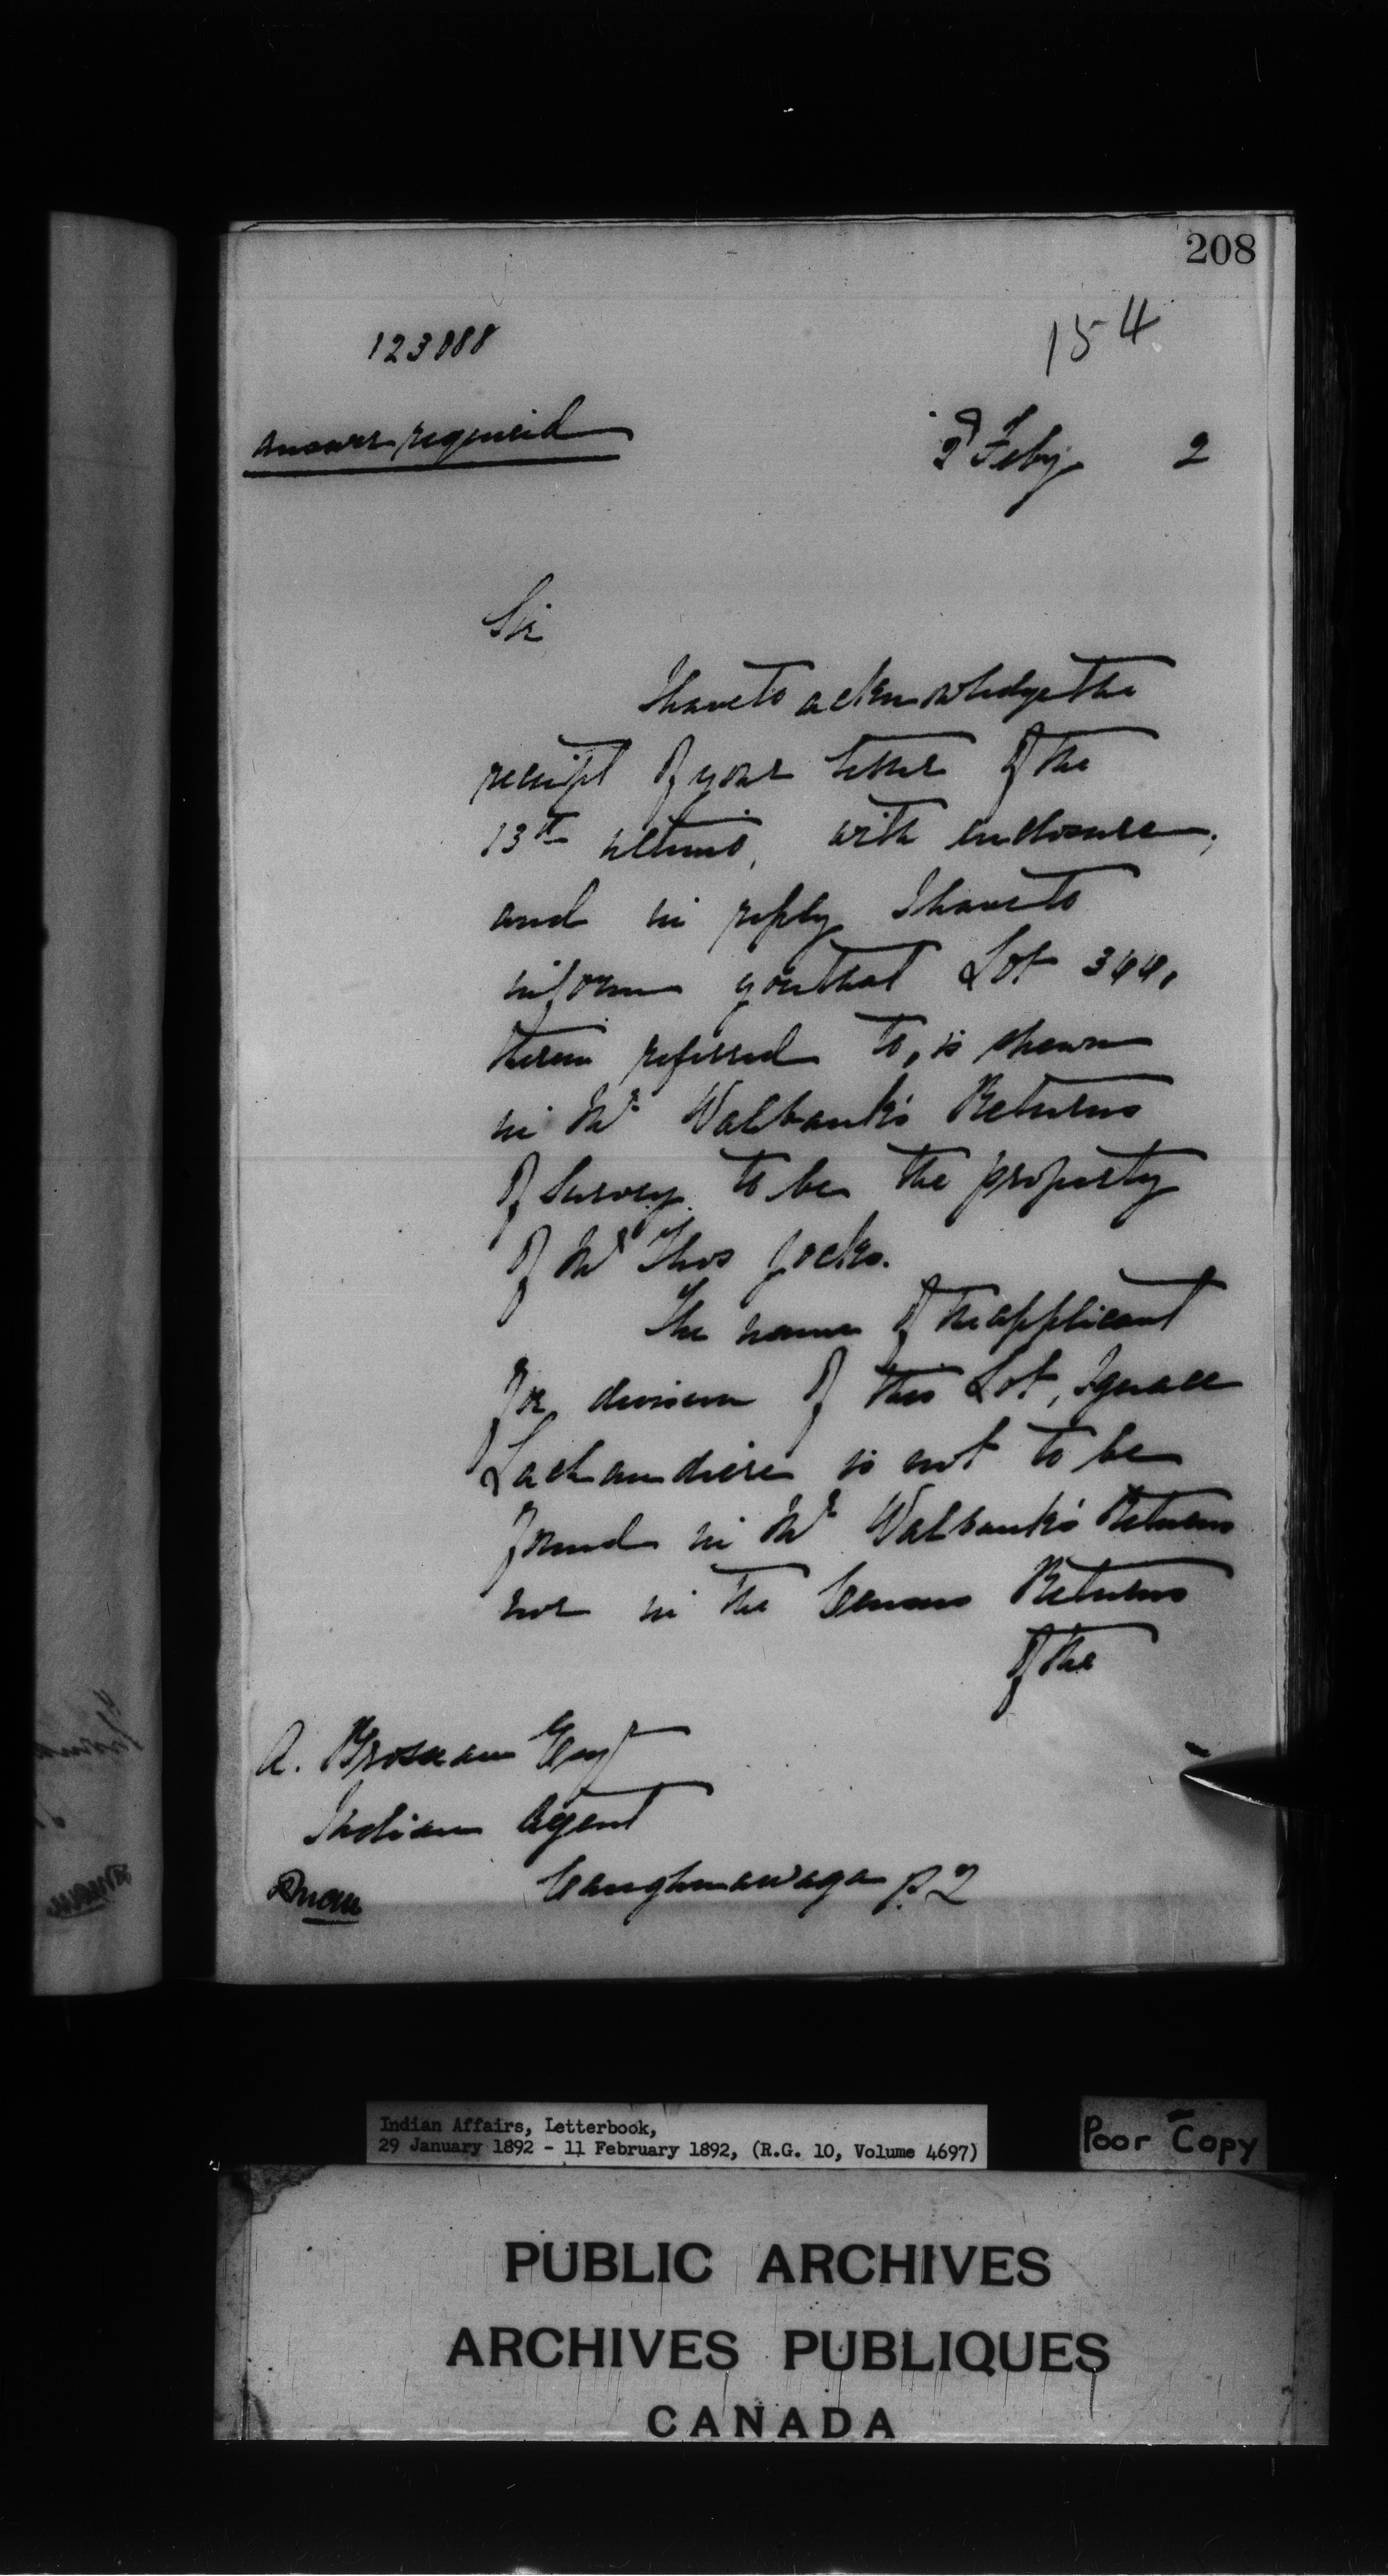 208
154
123888
Answer required
2d Feby 2
Sir
I have to acknowledge the
receipt of your letter of the
13th ultimo, with enclosure,
and in reply I have to
inform you that Lot 344,
therein referred to, is shewn
in Mr Walbank's Returns
of Survey to be the property
of Mr Thos Jocks.
The name of the applicant
for division of this Lot, Ignace
is not to be
found in Mr Walbank's Returns
nor in the Census Returns
of the
A. Brosseau Esq
Indian Agent
Caughnawaga P.Q
Indian Affairs, Letterbook,
29 January 1892 - 11 February 1892, (R.G. 10, Volume 4697)
Poor Copy
PUBLIC ARCHIVES
ARCHIVES PUBLIQUES
CANADA